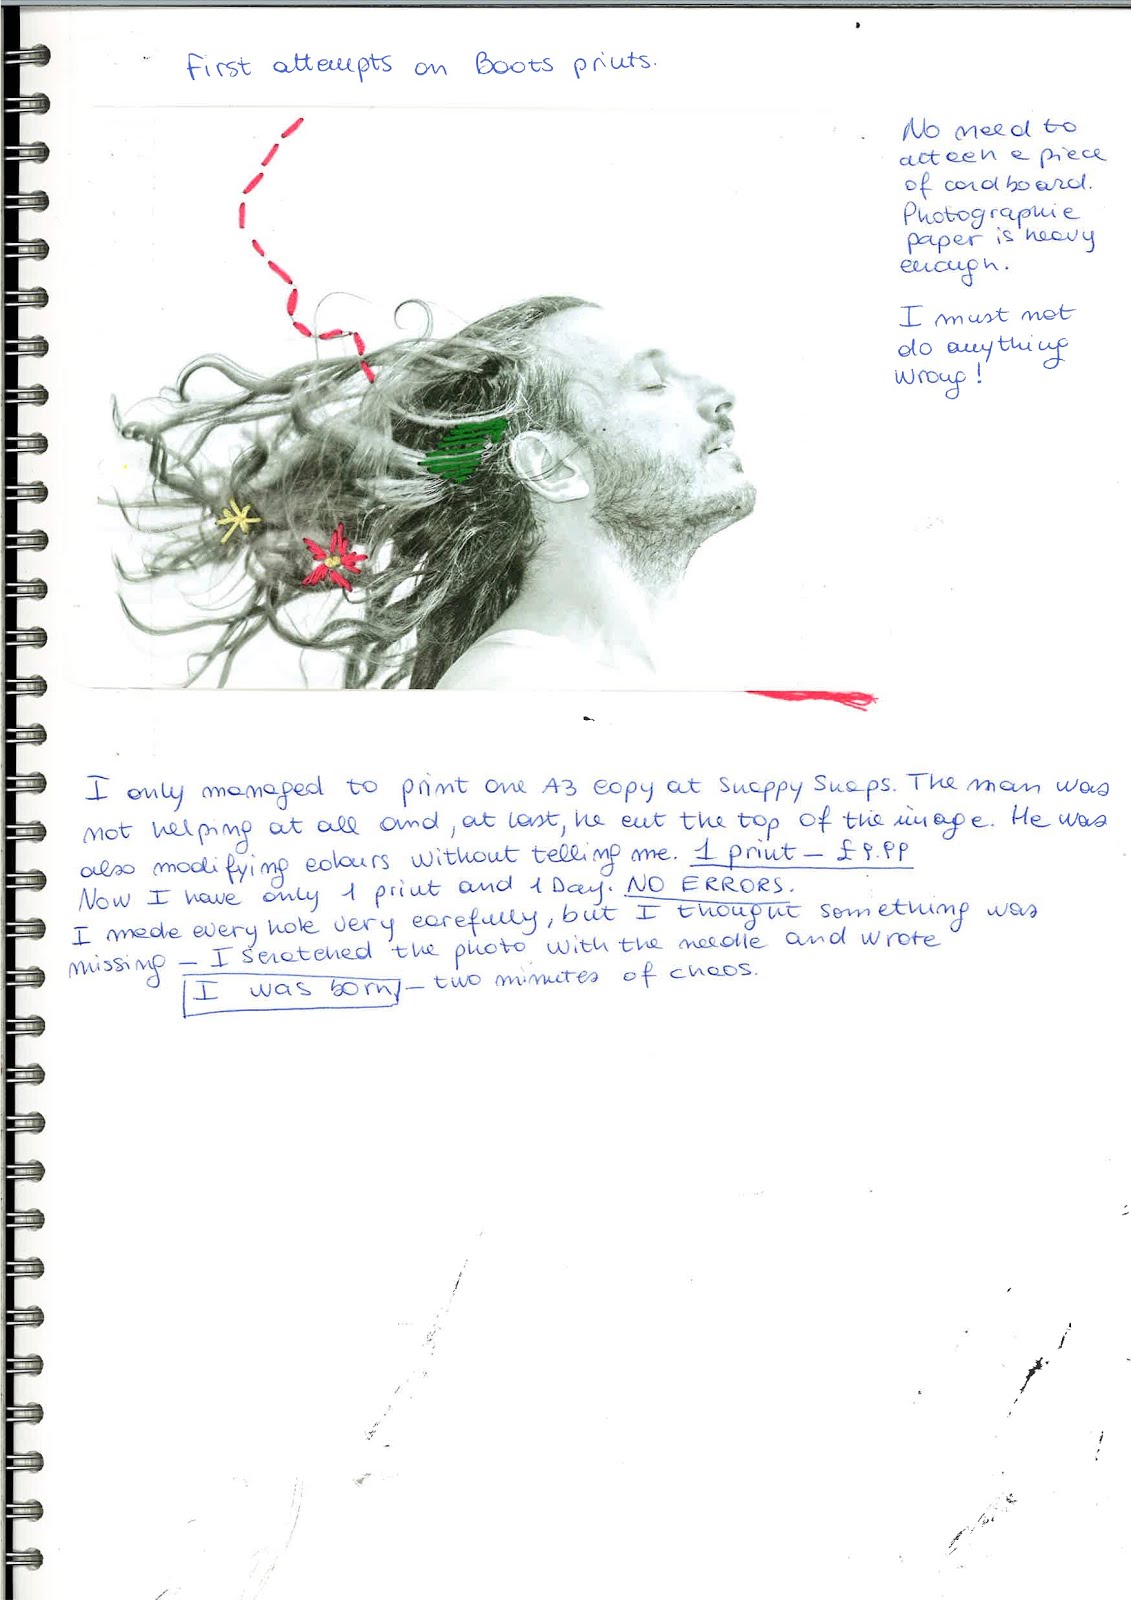 First attempts on Boots prints.
No need to
atteen a piece
of cardboard.
Photographic
paper is heavy
enough.
I must not
do anything
wrong!
I only managed to print one A3 copy at Snappy Snaps. The man was
not helping at all and, at last, he cut the top of the image. He was
also modifying colours without telling me. 1 print – £9.99
Now I have only 1 print and 1 Day. NO ERRORS.
I made every hole very carefully, but I thought something was
missing – I scratched the photo with the needle and wrote
I was born – two minutes of chaos.